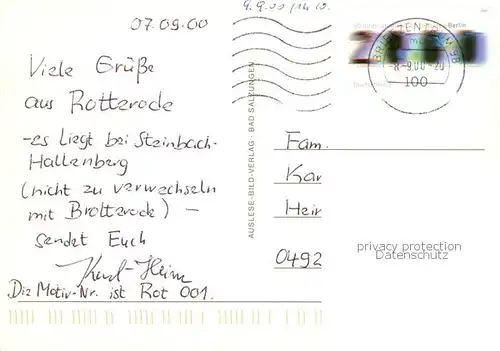 07.09.00
9.9.00/14
Viele Grüße
aus Rotterode
-es liegt bei Steinbach-
Hallenberg
(nicht zu verwechseln
mit Brotterode) -
sendet Euch
Karl-Heinz
Die Motiv-Nr. ist Rot 001.
AUSLESE-BILD-VERLAG · BAD SALZUNGEN
Berlin
BRIEFZENTRUM 98
-8.-9.00-20
100
Fam.
Kar
Heir
0492
privacy protection
Datenschutz